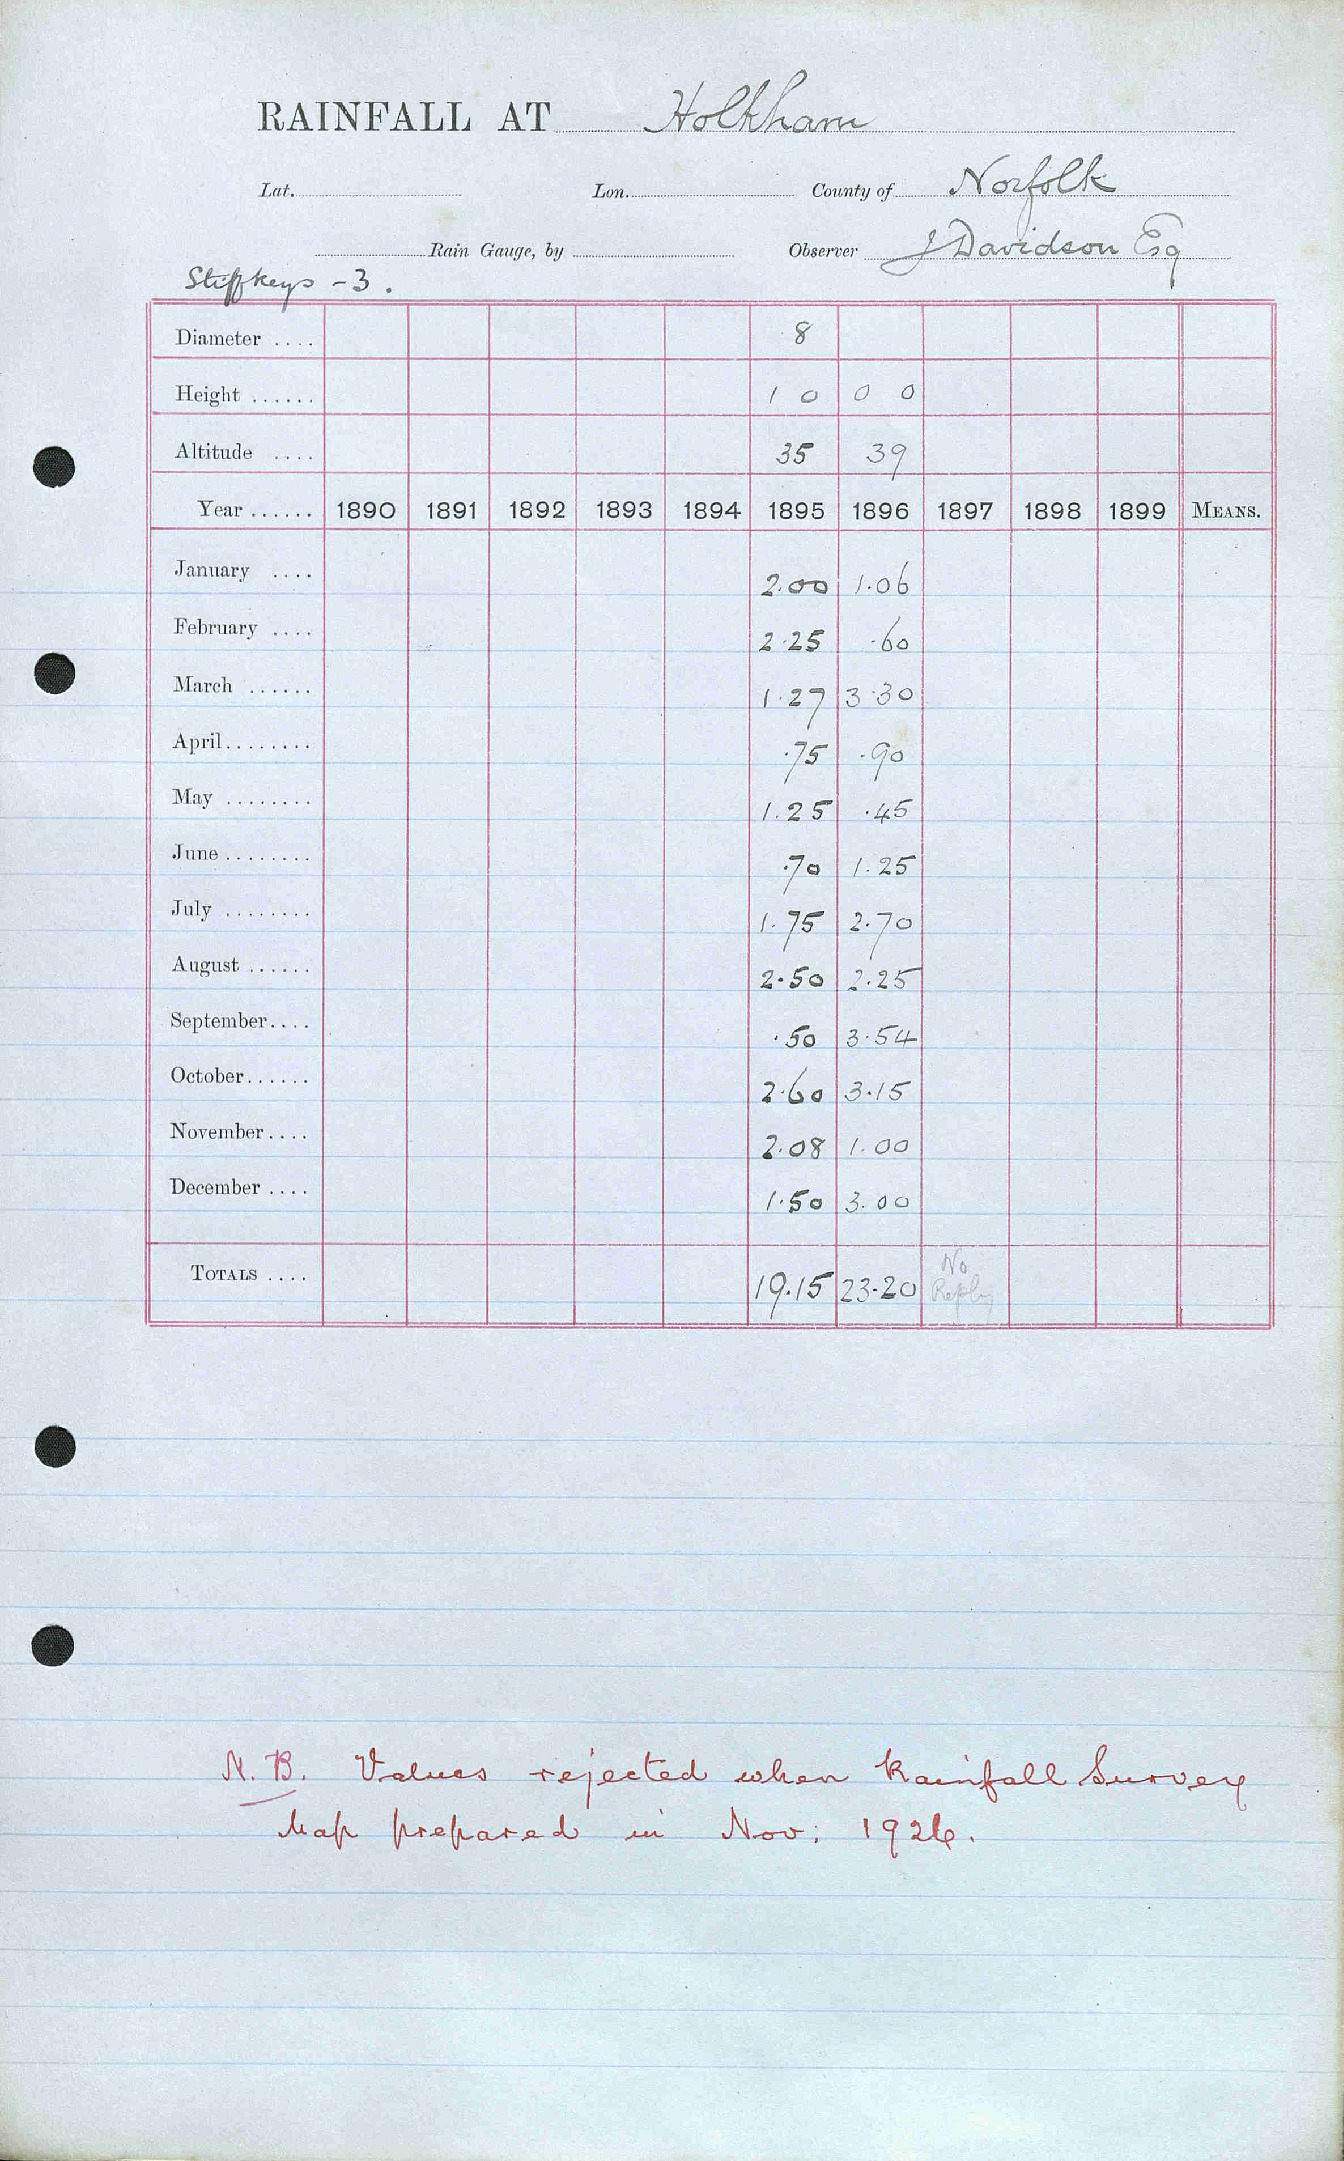 RAINFALL AT Holkham
Lat. Lon. County of Norfolk
Rain Gauge, by Observer J Davidson Esq
Stiffkeys - 3.
Diameter .... 8
Height ...... 1 0 0 0
Altitude .... 35 39
Year ...... 1890 1891 1892 1893 1894 1895 1896 1897 1898 1899 MEANS.
January .... 2.00 1.06
February .... 2.25 .60
March ...... 1.27 3.30
April........ .75 .90
May ........ 1.25 .45
June........ .70 1.25
July ........ 1.75 2.70
August ...... 2.50 2.25
September.... .50 3.54
October...... 2.60 3.15
November.... 2.08 1.00
December .... 1.50 3.00
TOTALS .... 19.15 23.20 No Reply
N.B. Values rejected when Rainfall Survey
Map prepared in Nov: 1926.